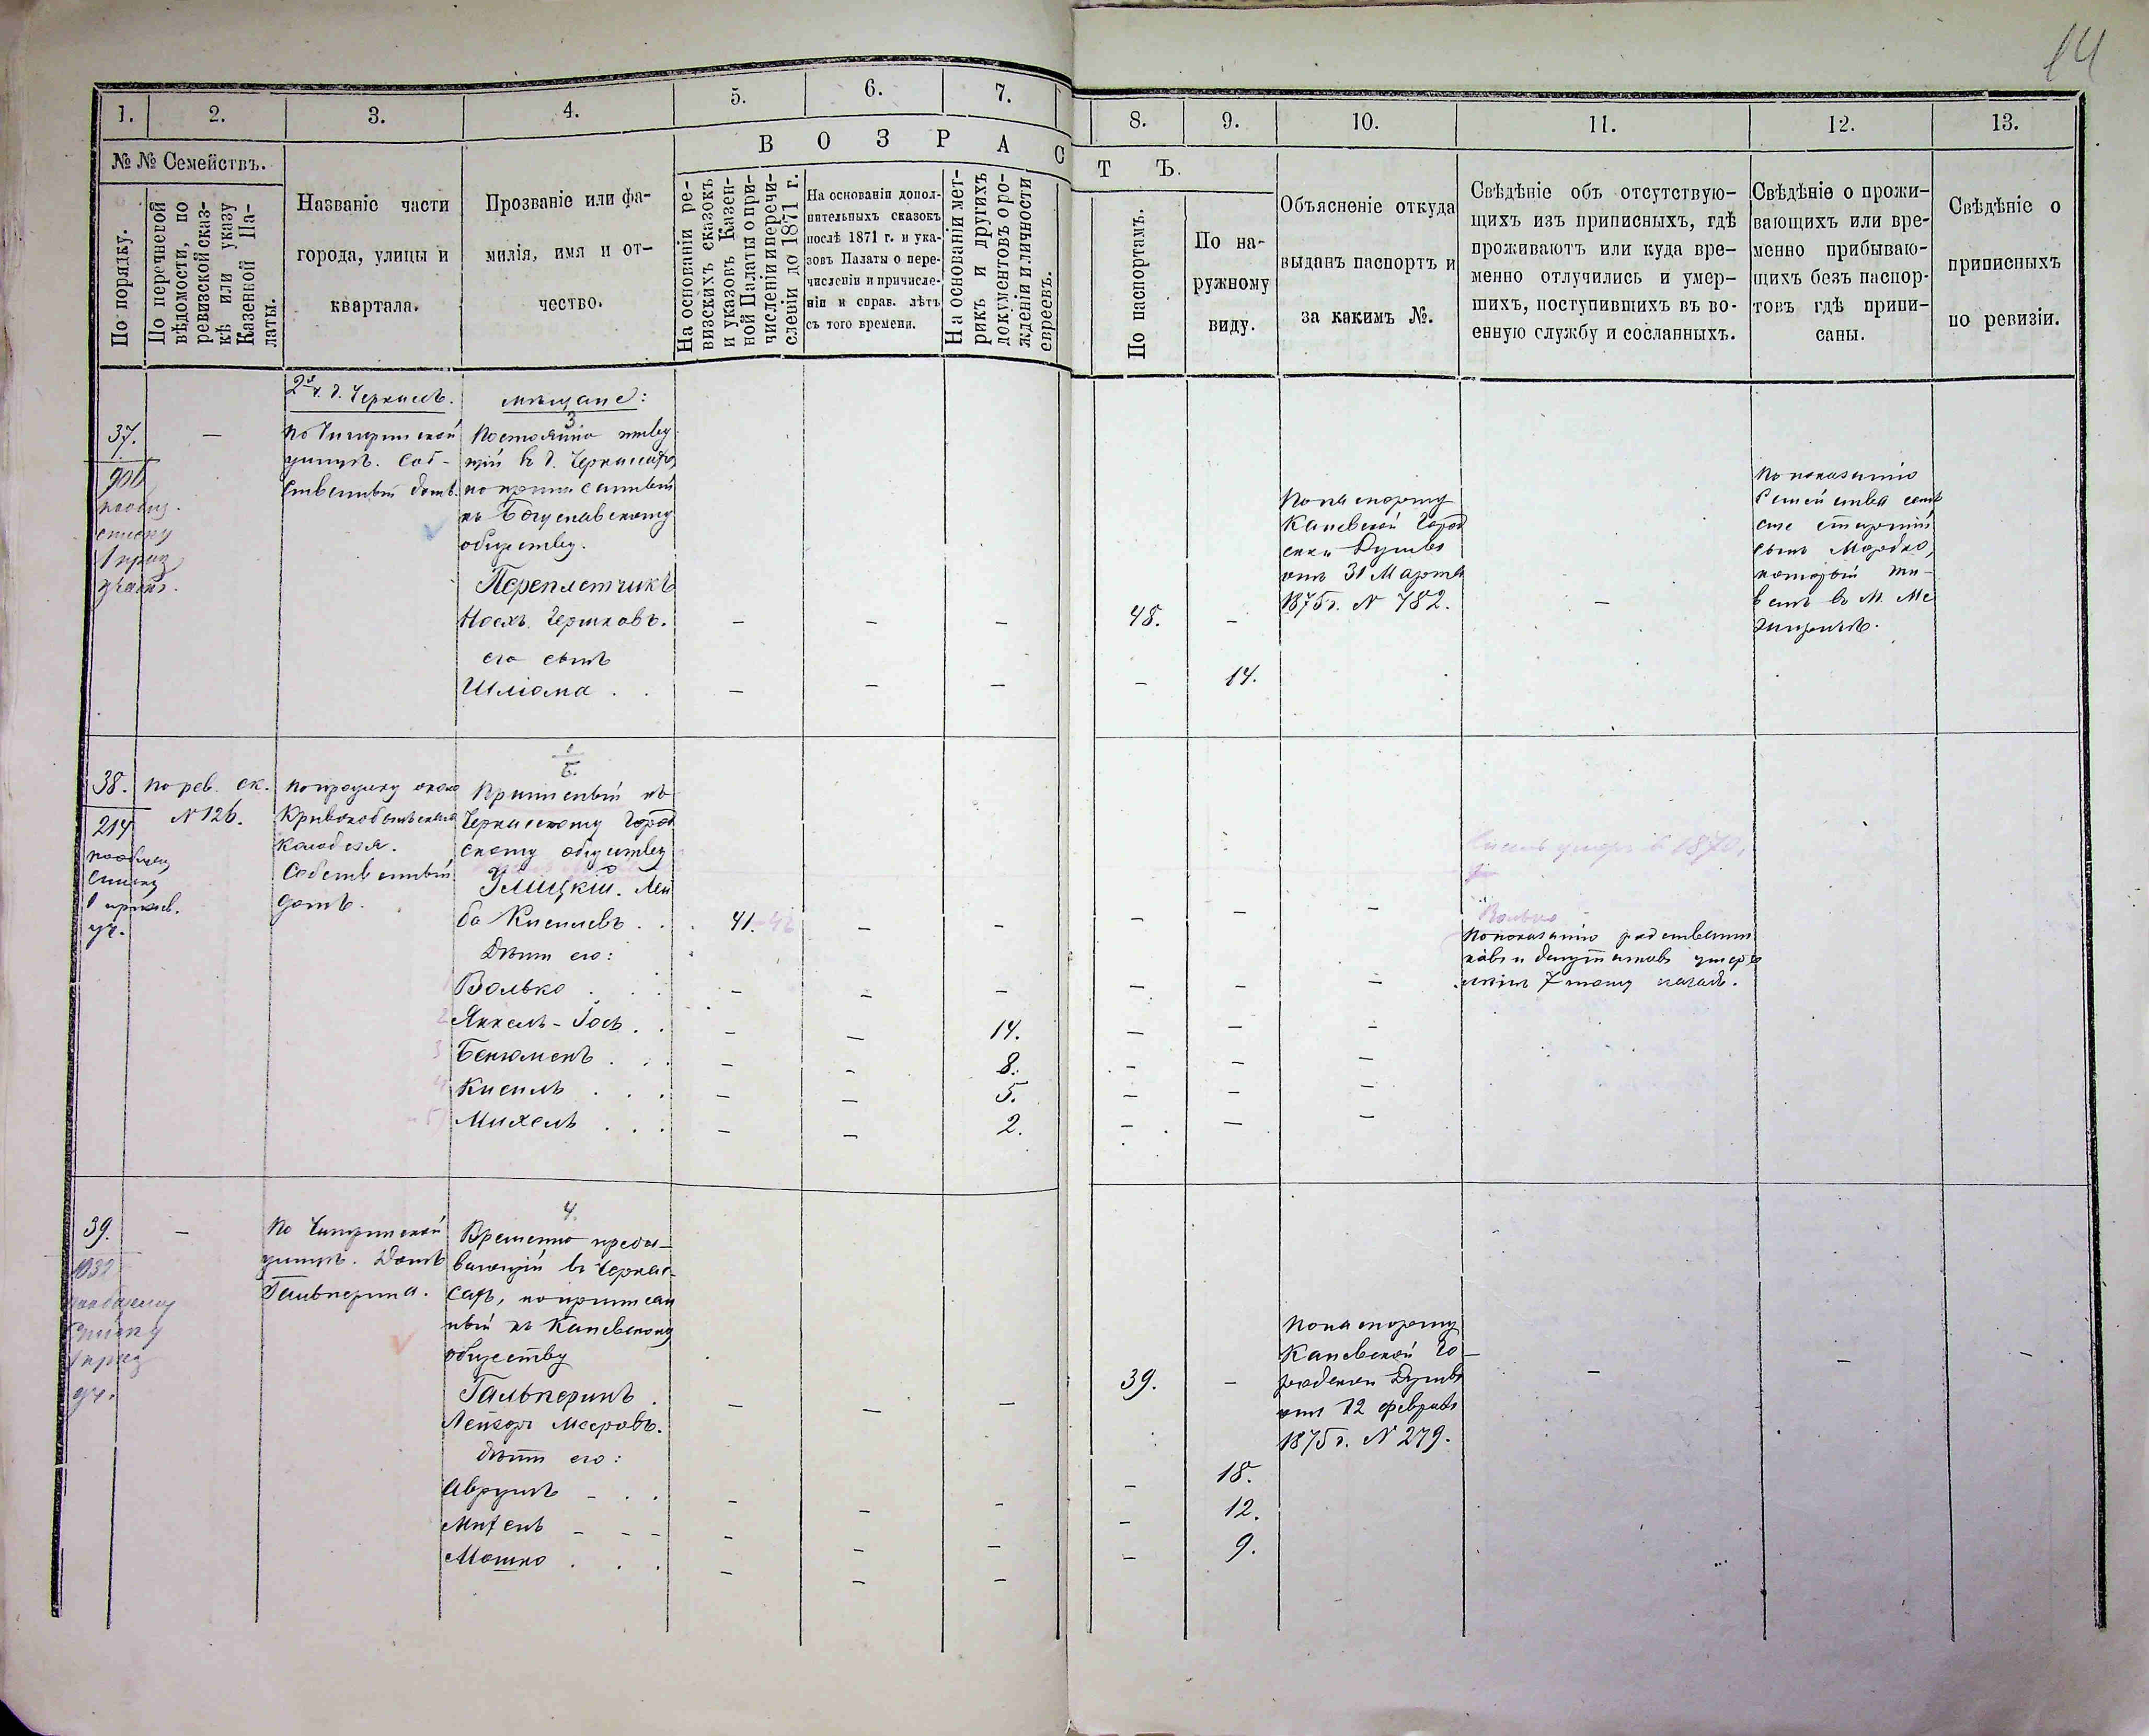 14
1.
2.
3.
4.
5.
6.
7.
8.
9.
10.
11.
12.
13.
№ № Семействъ.
По порядку.
По перечневой
вѣдомости, по
ревизской сказ-
кѣ или указу
Казенной Па-
латы.
Названіе части
города, улицы и
квартала.
Прозваніе или фа-
милія, имя и от-
чество.
В О З Р А С Т Ъ.
На основаніи ре-
визскихъ сказокъ
и указовъ Казен-
ной Палаты о при-
численіи и перечи-
сленіи до 1871 г.
На основаніи допол-
нительныхъ сказокъ
послѣ 1871 г. и ука-
зовъ Палаты о пере-
численіи и причисле-
ніи и справ. лѣтъ
съ того времени.
На основаніи мет-
рикъ и другихъ
документовъ о ро-
жденіи и личности
евреевъ.
По паспортамъ.
По на-
ружному
виду.
Объясненіе откуда
выданъ паспортъ и
за какимъ №.
Свѣдѣніе объ отсутствую-
щихъ изъ приписныхъ, гдѣ
проживаютъ или куда вре-
менно отлучились и умер-
шихъ, поступившихъ въ во-
енную службу и сосланныхъ.
Свѣдѣніе о прожи-
вающихъ или вре-
менно прибываю-
щихъ безъ паспор-
товъ гдѣ припи-
саны.
Свѣдѣніе о
приписныхъ
по ревизіи.
2 ч. г. Черкасъ.
мѣщане:
3
37.
—
906
списку
По Чигиринской
улицѣ. Соб-
ственный домъ.
Постоянно живу
щій въ г. Черкасахъ,
но приписанный
къ Богуславскому
обществу.
Переплетчикъ
Носхъ Гершковъ.
— — — 48. —
его сынъ
Шліома . .
— — — — 14.
По паспорту
Каневской Город
ской Думы
отъ 31 Марта
1875 г. № 782.
—
По показанію
семейства есть
еще старшій
сынъ Мордко,
который жи-
ветъ въ М. Ме
жиричѣ.
38.
214
списку
уч.
По рев. ск.
№ 126.
Кривокобыльскаго
колодезя.
Собственный
домъ.
5.
Приписный къ
Черкасскому Город
скому обществу
Улицкій. Лей
ба Киселевъ . .
41. — — — — —
Дѣти его:
1 Волько . . .
— — — — — —
2 Янкель-Іось . .
— — 14. — — —
3 Бенюменъ . . .
— — 8. — — —
4 Кисиль . . .
— — 5. — — —
5 Михель . . .
— — 2. — — —
умеръ въ 1870,
Волько
По показанію родственни
ковъ и депутатовъ умеръ
лѣтъ 7 тому назадъ.
39.
—
списку
уч.
По Чигиринской
улицѣ. Домъ
Гальперина.
4.
Временно пребы-
вающій въ Черкас-
сахъ, но приписан
ный къ Каневскому
обществу
Гальперинъ
Лейзоръ Мееровъ.
— — — 39. —
дѣти его:
Аврумъ - . .
— — — — 18.
Михель - - -
— — — — 12.
Мошко . . .
— — — — 9.
По паспорту
Каневской Го-
родской Думы
отъ 12 февраля
1875 г. № 279.
— — —